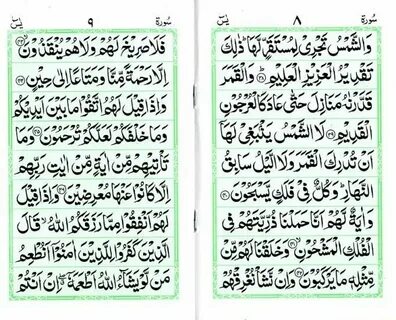 سُورَة ٨ يٰسٓ
وَالشَّمْسُ تَجْرِىْ لِمُسْتَقَرٍّ لَّهَا ؕ ذٰلِكَ
تَقْدِيْرُ الْعَزِيْزِ الْعَلِيْمِ ؕ‏﴿۳۸﴾ وَالْقَمَرَ
قَدَّرْنٰهُ مَنَازِلَ حَتّٰى عَادَ كَالْعُرْجُوْنِ
الْقَدِيْمِ ﴿۳۹﴾ لَا الشَّمْسُ يَنْۢبَغِىْ لَهَاۤ
اَنْ تُدْرِكَ الْقَمَرَ وَلَا الَّيْلُ سَابِقُ
النَّهَارِ ؕ وَكُلٌّ فِىْ فَلَكٍ يَّسْبَحُوْنَ ﴿۴۰﴾
وَاٰيَةٌ لَّهُمْ اَنَّا حَمَلْنَا ذُرِّيَّتَهُمْ فِى
الْفُلْكِ الْمَشْحُوْنِ ۙ﴿۴۱﴾ وَخَلَقْنَا لَهُمْ مِّنْ
مِّثْلِهٖ مَا يَرْكَبُوْنَ ﴿۴۲﴾ وَاِنْ نَّشَاْ نُغْرِقْهُمْ
سُورَة ٩ يٰسٓ
فَلَا صَرِيْخَ لَهُمْ وَلَا هُمْ يُنْقَذُوْنَ ۙ﴿۴۳﴾
اِلَّا رَحْمَةً مِّنَّا وَمَتَاعًا اِلٰى حِيْنٍ ﴿۴۴﴾
وَاِذَا قِيْلَ لَهُمُ اتَّقُوْا مَا بَيْنَ اَيْدِيْكُمْ
وَمَا خَلْفَكُمْ لَعَلَّكُمْ تُرْحَمُوْنَ ﴿۴۵﴾ وَمَا
تَاْتِيْهِمْ مِّنْ اٰيَةٍ مِّنْ اٰيٰتِ رَبِّهِمْ
اِلَّا كَانُوْا عَنْهَا مُعْرِضِيْنَ ﴿۴۶﴾ وَاِذَا قِيْلَ
لَهُمْ اَنْفِقُوْا مِمَّا رَزَقَكُمُ اللّٰهُ ۙ قَالَ
الَّذِيْنَ كَفَرُوْا لِلَّذِيْنَ اٰمَنُوْۤا اَنُطْعِمُ
مَنْ لَّوْ يَشَآءُ اللّٰهُ اَطْعَمَهٗۤ ۖ اِنْ اَنْتُمْ